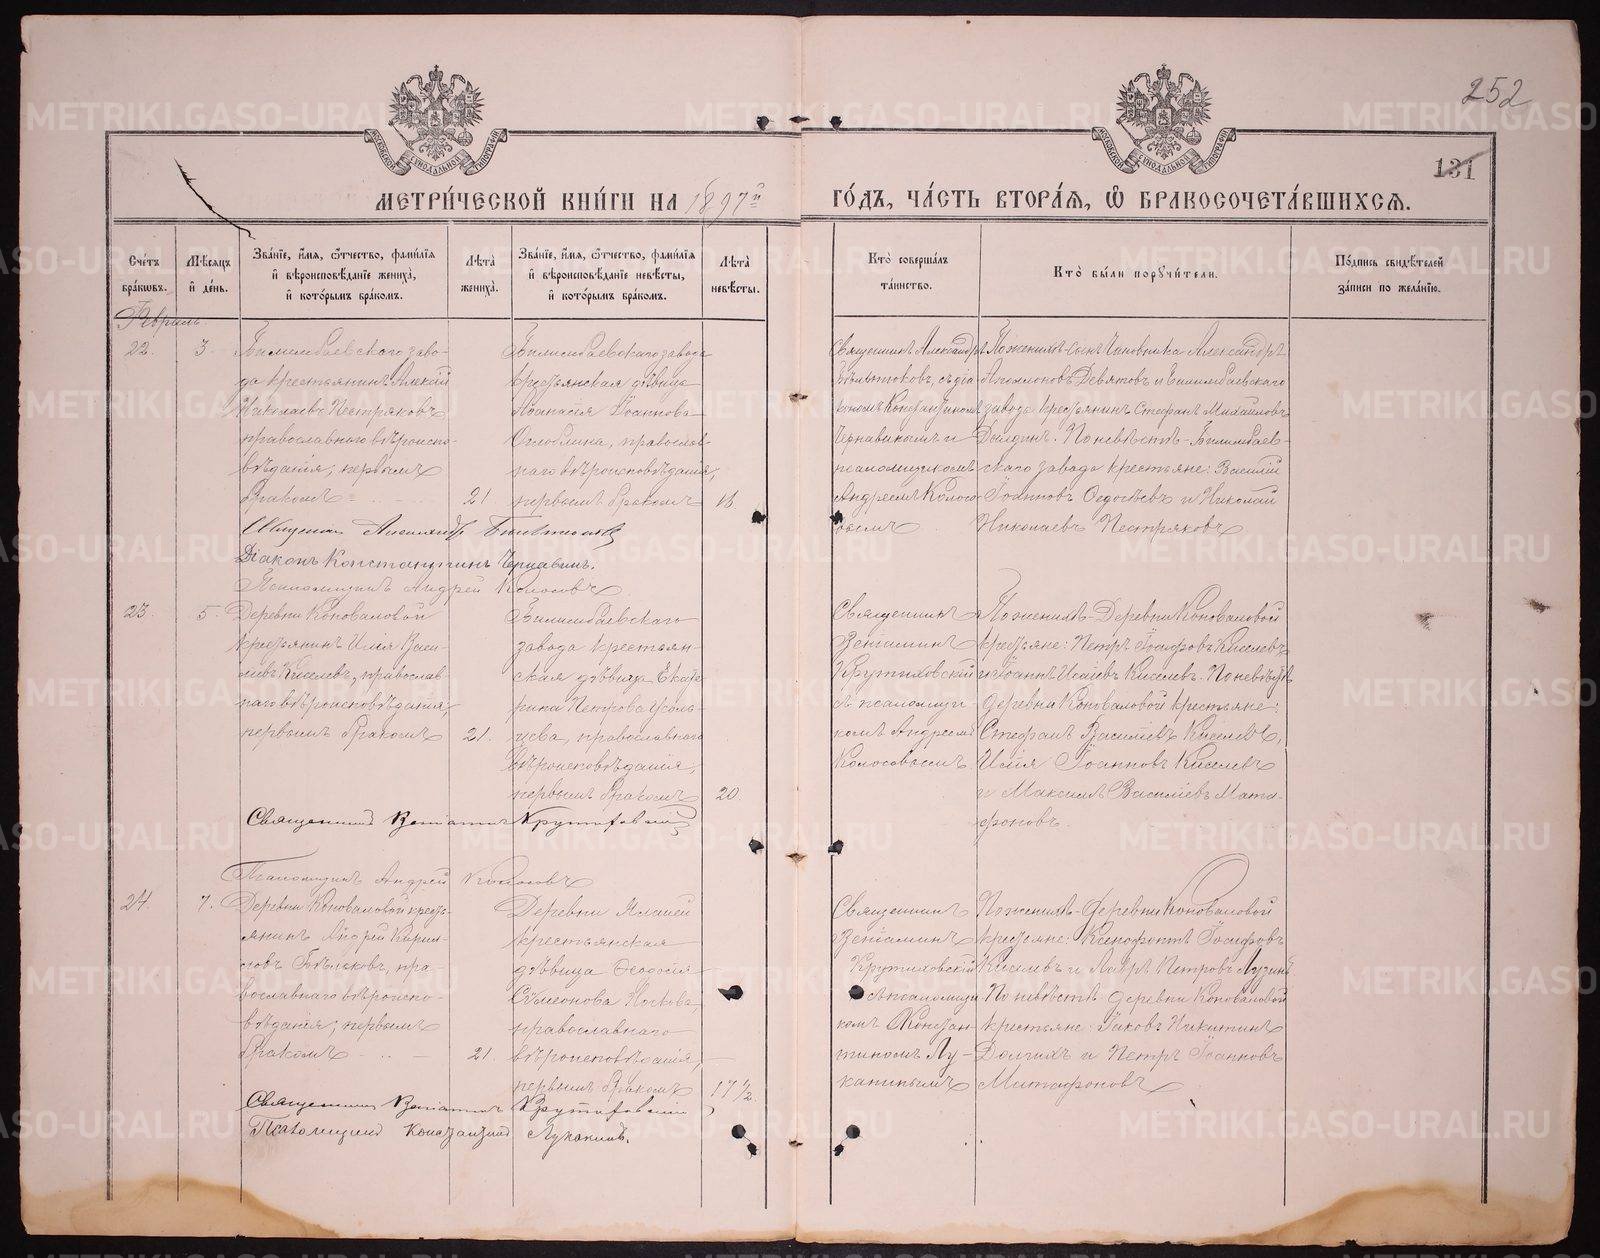 252
131
МЕТРИЧЕСКОЙ КНИГИ НА 1897й
ГОДЪ, ЧАСТЬ ВТОРАЯ, Ѿ БРАКОСОЧЕТАВШИХСЯ.
Счетъ браковъ.
Мѣсяцъ и день.
Званіе, имя, отчество, фамилія и вѣроисповѣданіе жениха, и которымъ бракомъ.
Лѣта жениха.
Званіе, имя, отчество, фамилія и вѣроисповѣданіе невѣсты, и которымъ бракомъ.
Лѣта невѣсты.
Кто совершалъ таинство.
Кто были поручители.
Подпись свидѣтелей записи по желанію.
Февраль
22.
3.
Билимбаевскаго заво-
да крестьянинъ Алексій
Николаевъ Пестряковъ
православнаго вѣроиспо-
вѣданія; первымъ
бракомъ
21
Билимбаевскаго завода
крестьянская дѣвица
Аѳанасія Іоаннова
Оглоблина, православ-
наго вѣроисповѣданія,
первымъ бракомъ
18
Священникъ Александръ
Бѣльтюковъ, съ діа-
кономъ Константиномъ
Чернавинымъ и
псаломщикомъ
Андреемъ Колосо-
вымъ
По женихѣ - сынъ чиновника Александръ
Аполлоновъ Девятовъ и Билимбаевскаго
завода крестьянинъ Стефанъ Михайловъ
По невѣстѣ - Билимбаев-
скаго завода крестьяне: Василій
Іоанновъ Ѳедосѣевъ и Николай
Николаевъ Пестряковъ
Священникъ Александръ Бѣльтюковъ
Діаконъ Константинъ Чернавинъ.
Псаломщикъ Андрей Колосовъ
23.
5.
Деревни Коноваловой
крестьянинъ Илія Васи-
ліевъ Киселевъ, православ-
наго вѣроисповѣданія,
первымъ бракомъ
21.
Билимбаевскаго
завода крестьян-
ская дѣвица Екате-
рина Петрова
православнаго
вѣроисповѣданія,
первымъ бракомъ
20.
Священникъ
Веніаминъ
Крутиховскій
съ псаломщи-
комъ Андреемъ
Колосовымъ
По женихѣ - Деревни Коноваловой
крестьяне: Петръ Іосифовъ Киселевъ
и Іоаннъ Исаіевъ Киселевъ. По невѣстѣ
деревни Коноваловой крестьяне:
Стефанъ Василіевъ Киселевъ,
Илія Іоанновъ Киселевъ
и Максимъ Василіевъ Мата-
фоновъ.
Священникъ Веніаминъ Крутиховскій
Псаломщикъ Андрей Колосовъ
24.
7.
Деревни Коноваловой кресть-
янинъ Андрей Кирил-
ловъ Бѣльковъ, пра-
вославнаго вѣроиспо-
вѣданія; первымъ
бракомъ
21.
Деревни
крестьянская
дѣвица Ѳеодосія
Сѵмеонова Носкова,
православнаго
вѣроисповѣданія,
первымъ бракомъ
17½
Священникъ
Веніаминъ
Крутиховскій
съ псаломщи-
комъ Констан-
тиномъ Лу-
канинымъ
По женихѣ - деревни Коноваловой
крестьяне: Ксенофонтъ Іосифовъ
Киселевъ и Лавръ Петровъ Лузинъ
По невѣстѣ деревни Коноваловой
крестьяне: Іаковъ Никитинъ
Долгихъ и Петръ Іоанновъ
Матафоновъ
Священникъ Веніаминъ Крутиховскій
Псаломщикъ Константинъ Луканинъ.
METRIKI.GASO-URAL.RU